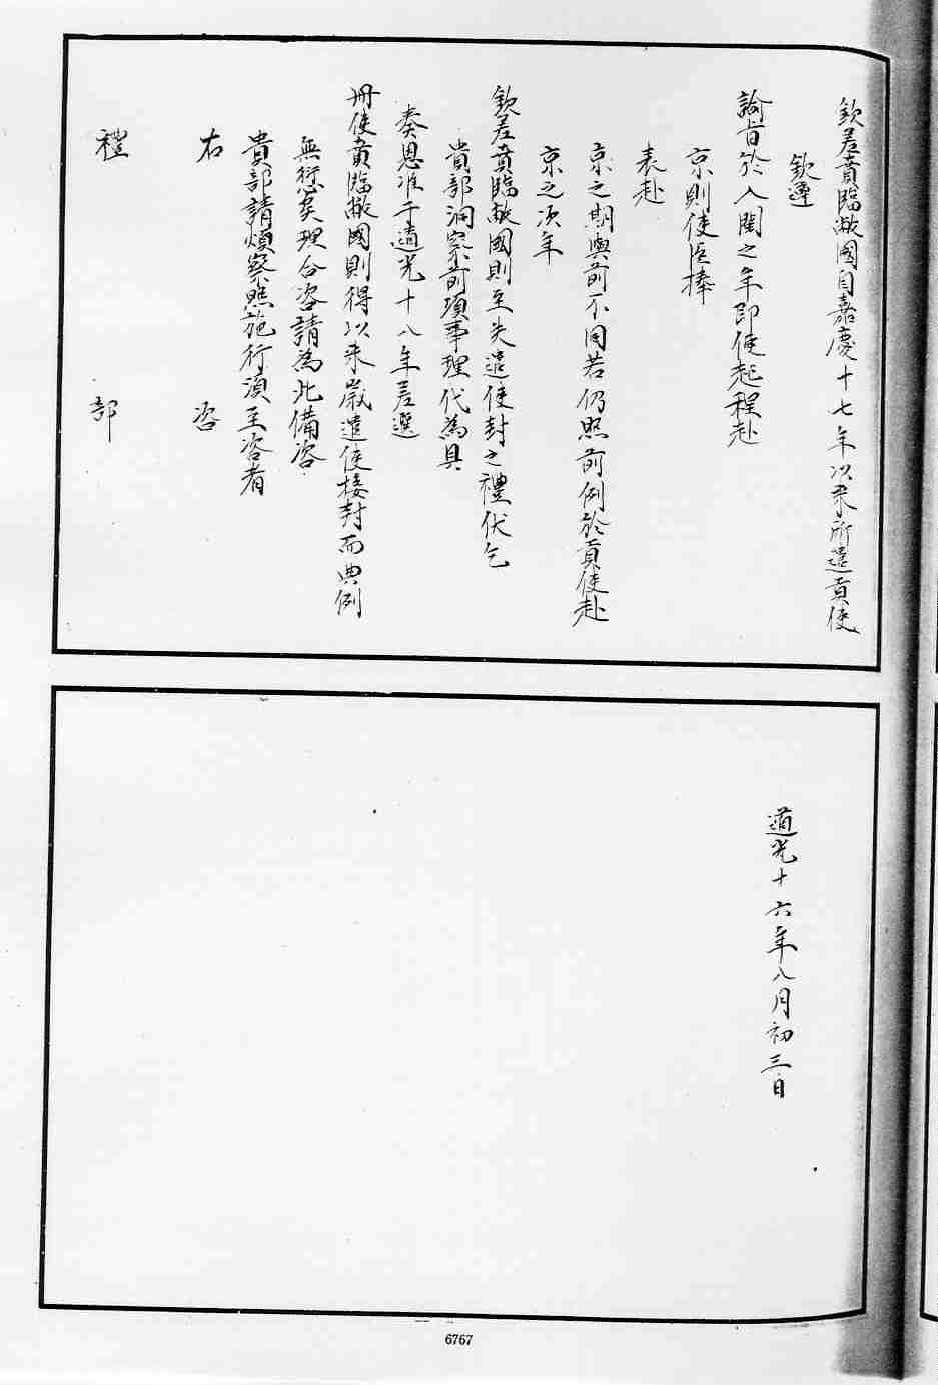 欽差賁臨敝國自嘉慶十七年以來所遣貢使
欽遵
諭旨於入閩之年即使起程赴
京則使臣捧
表赴
京之期與前不同若仍照前例於貢使赴
京之次年
欽差賁臨敝國則至失遣使封之禮伏乞
貴部洞察前項事理代為具
奏恩准于道光十八年差選
冊使賁臨敝國則得以來歲遣使接封而典例
無愆矣理合咨請為此備咨
貴部請煩察照施行須至咨者
右咨
禮部
道光十六年八月初三日
6767